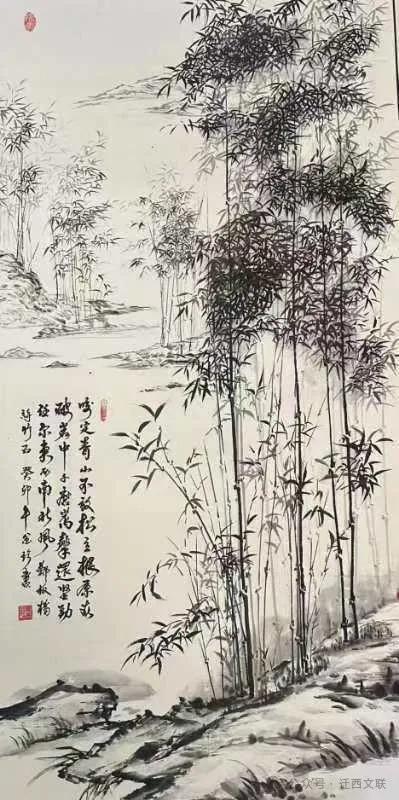 咬定青山不放松立根原在
破岩中千磨萬擊還坚劲
任尔東西南北风鄭板橋
詩竹石 癸卯年
公众号 · 迁西文联